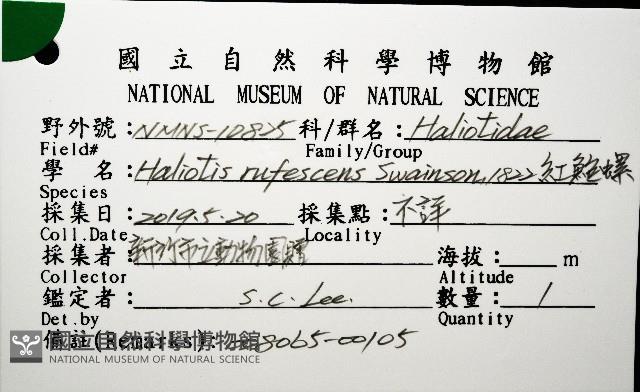 國立自然科學博物館
NATIONAL MUSEUM OF NATURAL SCIENCE
野外號：NMNS-10825 科/群名：Haliotidae
Field# Family/Group
學 名：Haliotis rufescens Swainson, 1822 紅鮑螺
Species
採集日：2019.5.20 採集點：不詳
Coll.Date Locality
採集者：新竹市立動物園 海拔： m
Collector Altitude
鑑定者：S.C. Lee. 數量：1
Det.by Quantity
備註(Remarks): 8065-00105
國立自然科學博物館
NATIONAL MUSEUM OF NATURAL SCIENCE